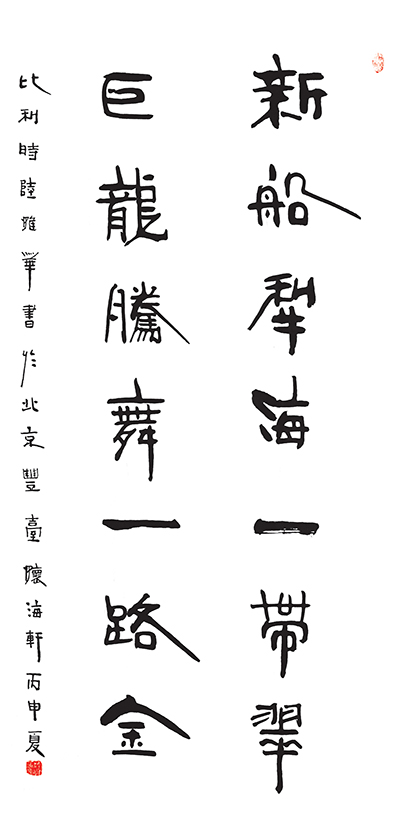 新船犁海一带翠
巨龍騰舞一路金
比利時陸雅華書於北京豐臺懷海軒丙申夏